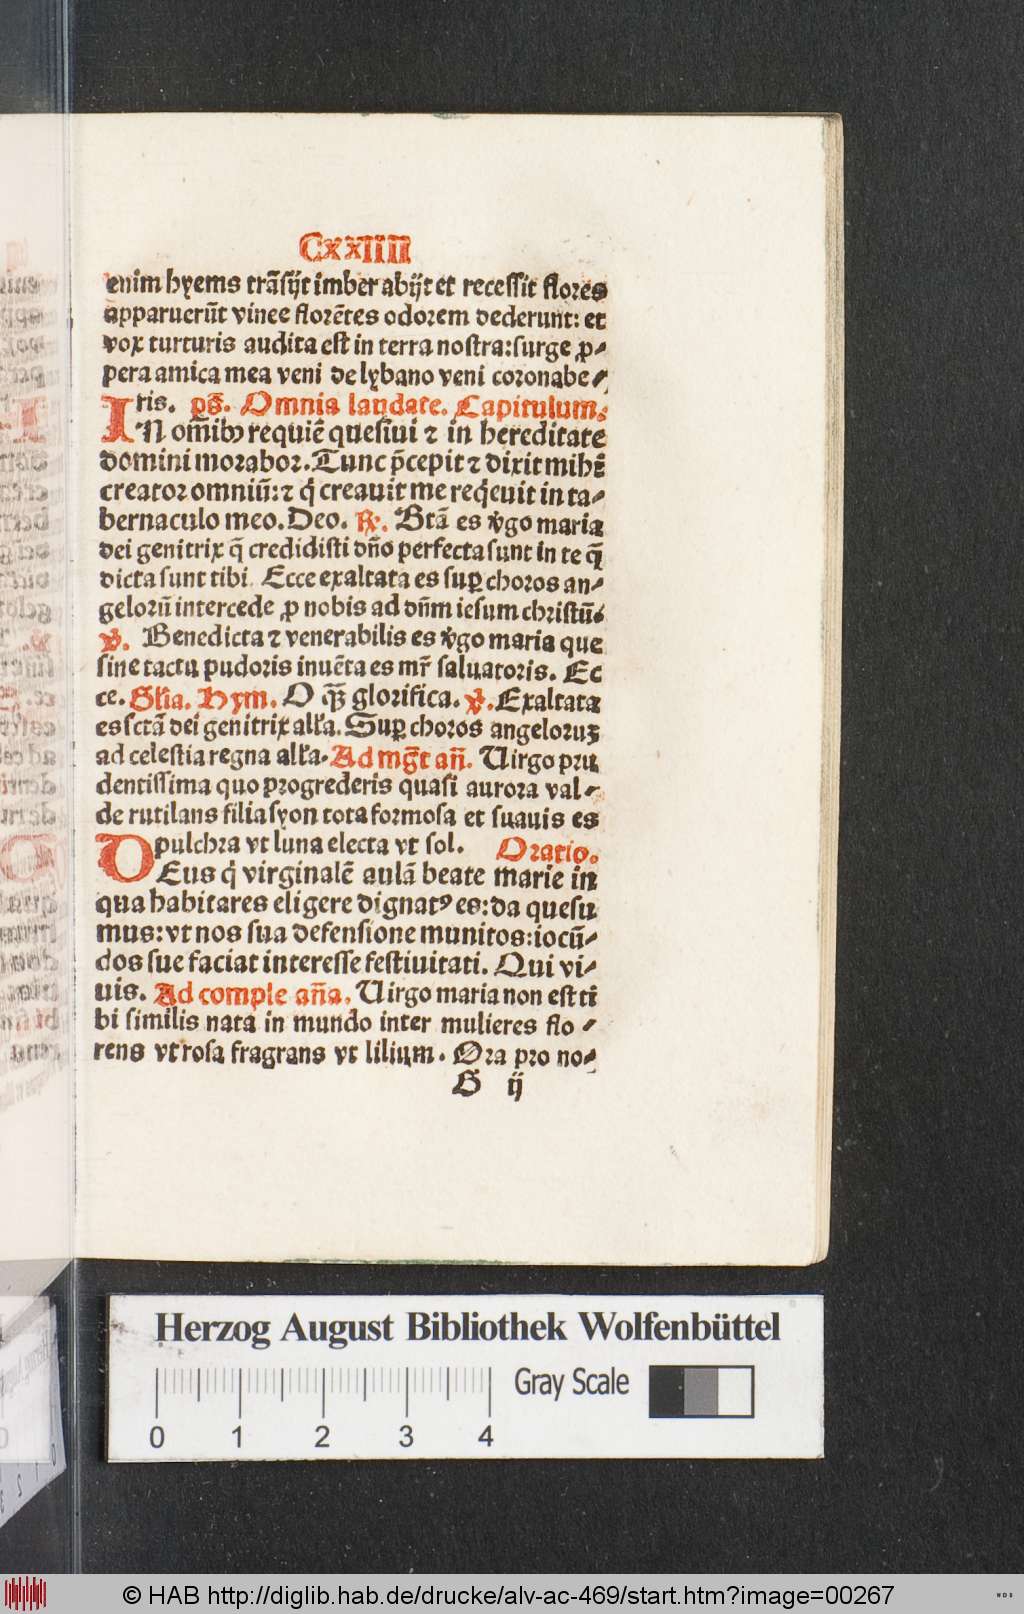 CxxIIII
enim hyems trāsijt imber abijt et recessit flores
apparuerūt vinee florētes odorem dederunt: et
vox turturis audita est in terra nostra: surge ꝓ⸗
pera amica mea veni de lybano veni coronabe⸗
ris. ps̄. Omnia laudate. Capitulum.
IN om̄ibꝰ requiē quesiui ⁊ in hereditate
domini morabor. Tunc p̄cepit ⁊ dixit mihi
creator omniū: ⁊ q̇ creauit me req̇euit in ta⸗
bernaculo meo. Deo. ℟. Btā es v̇go maria
dei genitrix q̄ credidisti dn̄o perfecta sunt in te q̄
dicta sunt tibi Ecce exaltata es suꝑ choros an⸗
gelorū intercede ꝓ nobis ad dn̄m iesum christū.
℣. Benedicta ⁊ venerabilis es v̇go maria que
sine tactu pudoris inuēta es mr̄ saluatoris. Ec
ce. Gl'ia. Hym. O q̄ꝫ glorifica. ℣. Exaltata
es sctā dei genitrix all'a. Suꝑ choros angeloruꝫ
ad celestia regna all'a. Ad mgt̄ an̄. Uirgo pru
dentissima quo progrederis quasi aurora val⸗
de rutilans filia syon tota formosa et suauis es
pulchra vt luna electa vt sol. Oratio.
DEus q̇ virginalē aulā beate marie in
qua habitares eligere dignatꝰ es: da quesu
mus: vt nos sua defensione munitos: iocū⸗
dos sue faciat interesse festiuitati. Qui vi⸗
uis. Ad comple an̄a. Uirgo maria non est ti
bi similis nata in mundo inter mulieres flo⸗
rens vt rosa fragrans vt lilium. Ora pro no⸗
G ij
Herzog August Bibliothek Wolfenbüttel
Gray Scale
0 1 2 3 4
© HAB http://diglib.hab.de/drucke/alv-ac-469/start.htm?image=00267